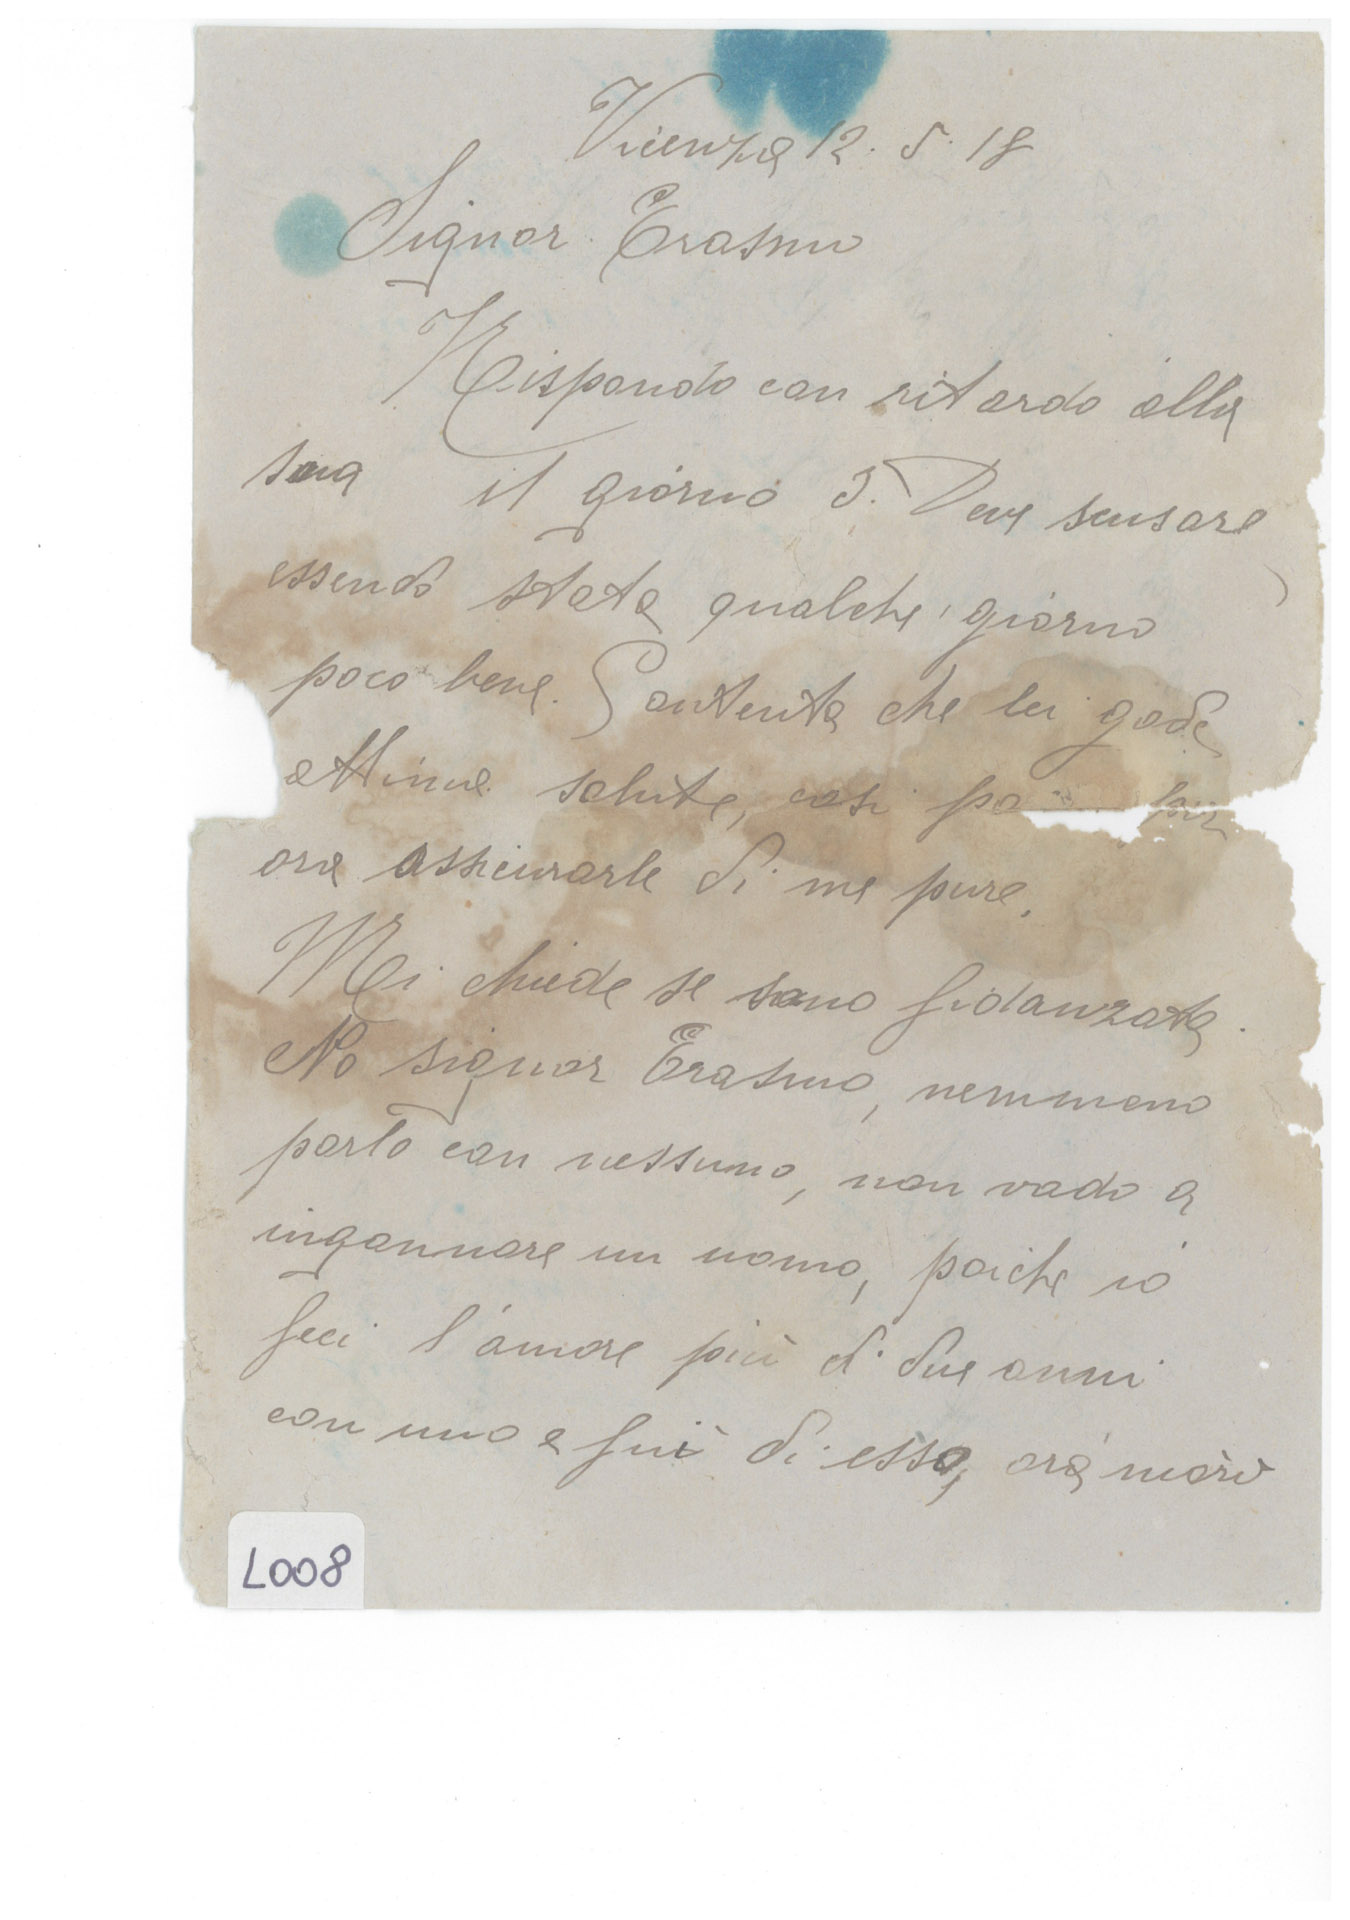 Vicenza 12. 5. 18
Signor Erasmo
Rispondo con ritardo alla
sua il giorno 5. Deve scusare
essendo stata qualche giorno
poco bene. Contenta che lei gode
ottima salute, così
ora assicurarle di me pure.
Mi chiede se sono fidanzata.
No signor Erasmo, nemmeno
parlo con nessuno, non vado a
ingannare un uomo, poiche io
feci l'amore più di due anni
con uno e fui di esso, ora morì
L008